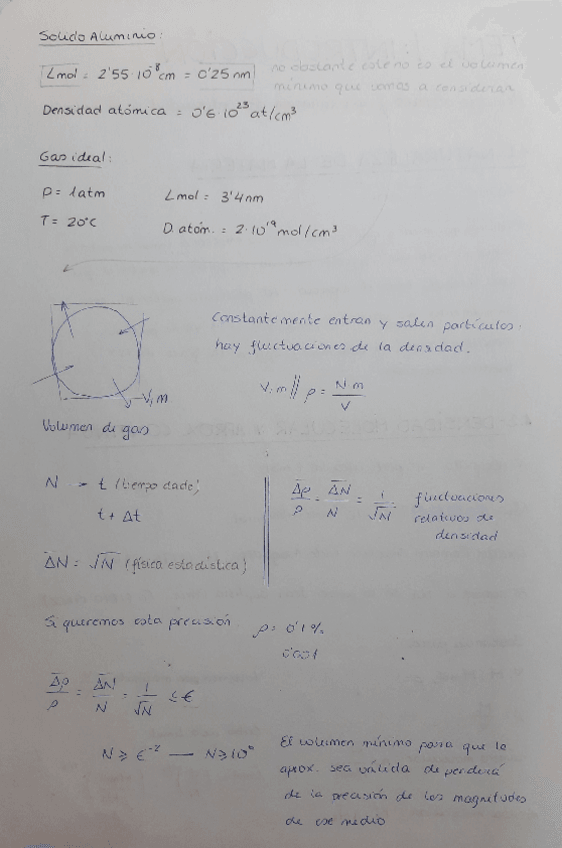 Solido Aluminio:
Lmol = 2'55·10⁻⁸cm = 0'25 nm
no obstante este no es el volumen
mínimo que vamos a considerar
Densidad atómica = 0'6·10²³ at/cm³
Gas ideal:
P = 1atm
Lmol = 3'4 nm
T = 20°C
D. atóm. = 2·10¹⁹ mol/cm³
Constantemente entran y salen partículas:
hay fluctuaciones de la densidad.
V, m
V, m || ρ = N m / V
Volumen de gas
N → t (tiempo dado)
t + Δt
Δρ/ρ = ΔN/N = 1/√N
fluctuaciones
relativas de
densidad
ΔN = √N (física estadística)
Si queremos esta precisión
ρ = 0'1%
0'001
Δρ/ρ = ΔN/N = 1/√N ≤ ϵ
N ≥ ϵ⁻² — N ≥ 10⁶
El volumen mínimo para que la
aprox. sea válida dependerá
de la precisión de las magnitudes
de ese medio